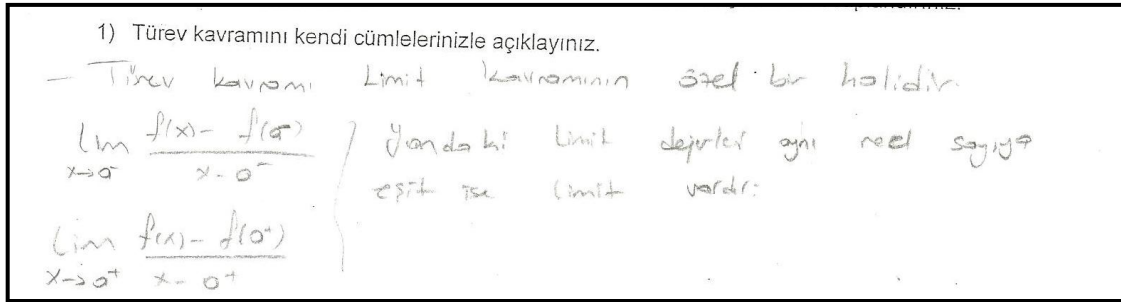 1) Türev kavramını kendi cümlelerinizle açıklayınız.
- Türev kavramı Limit kavramının özel bir halidir.
lim f(x) - f(a⁻) / x - a⁻ Yandaki Limit değerleri aynı reel sayıya
x→a⁻ eşit ise limit vardır.
lim f(x) - f(a⁺) / x - a⁺
x→a⁺